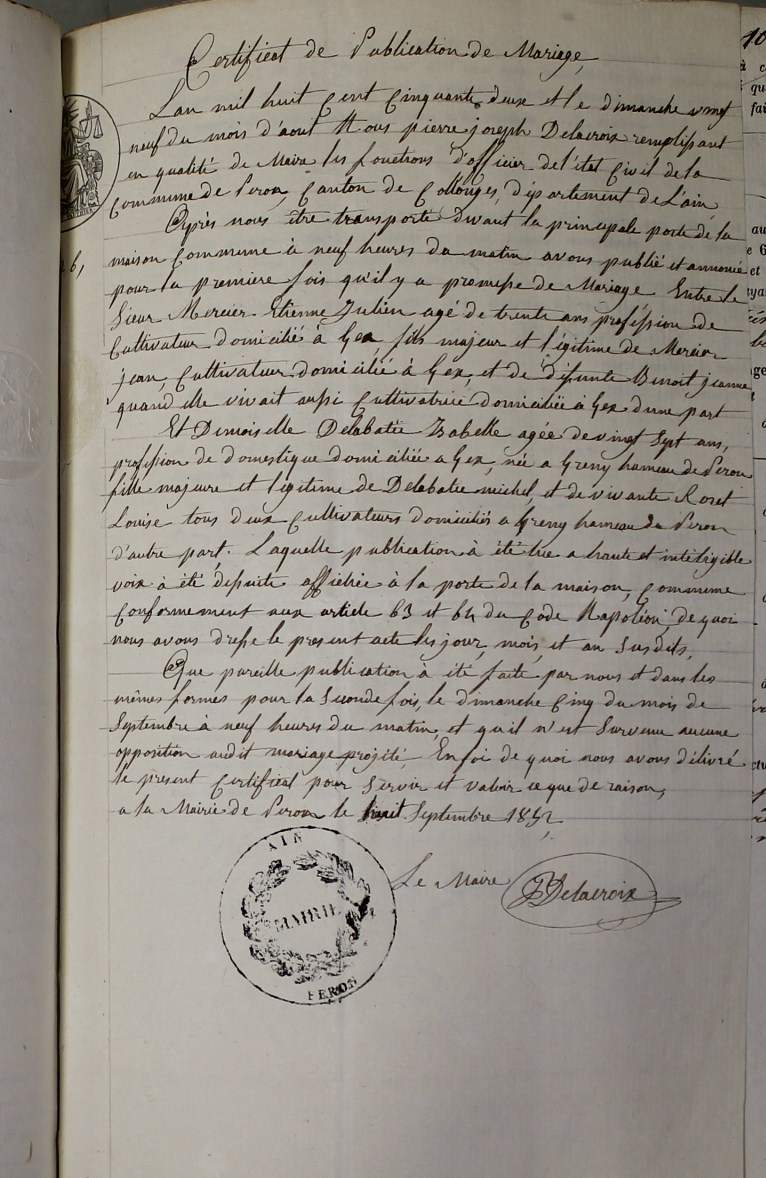 Certificat de Publication de Mariage,
L'an mil huit Cent Cinquante deux et le dimanche vingt
neuf du mois d'aout Nous pierre joseph Delacroix remplissant
en qualité de Maire les fonctions d'officier de l'état Civil de la
Commune de Peron, Canton de Collonges, département de L'ain,
Après nous être transporté devant la principale porte de la
maison Commune à neuf heures du matin avons publié et annoncé
pour la premiere fois qu'il y a promesse de Mariage Entre le
Sieur Mercier Etienne Julien agé de trente ans profession de
Cultivateur domicilié à Gex, fils majeur et légitime de Mercier
jean, Cultivateur domicilié à Gex, et de défunte Benoit jeanne
quand elle vivait aussi Cultivatrice domiciliée à Gex d'une part
Et Demoiselle Delabatie Izabelle agée de vingt Sept ans,
profession de domestique domiciliée a Gex, née a Greny hameau de Péron
fille majeure et légitime de Delabatie michel, et de vivante Roset
Louise tous deux Cultivateurs domiciliés a Greny hameau de Peron
d'autre part. Laquelle publication à été lue a haute et intéligible
voix à été depuite affichée à la porte de la maison, Commune
Conformement aux article 63 et 64 du Code Napoléon, de quoi
nous avons dressé le present acte les jour, mois, et an Susdits,
Que pareille publication à été faite par nous et dans les
mêmes formes pour la Seconde fois, le dimanche Cinq du mois de
Septembre à neuf heures du matin, et qu'il n'est Survenu aucune
opposition audit mariage projété, En foi de quoi nous avons délivré
le présent Certificat pour Servir et valoir ce que de raison,
a la Mairie de Peron le huit Septembre 1852,
Le Maire Delacroix
AIN
MAIRIE
PERON